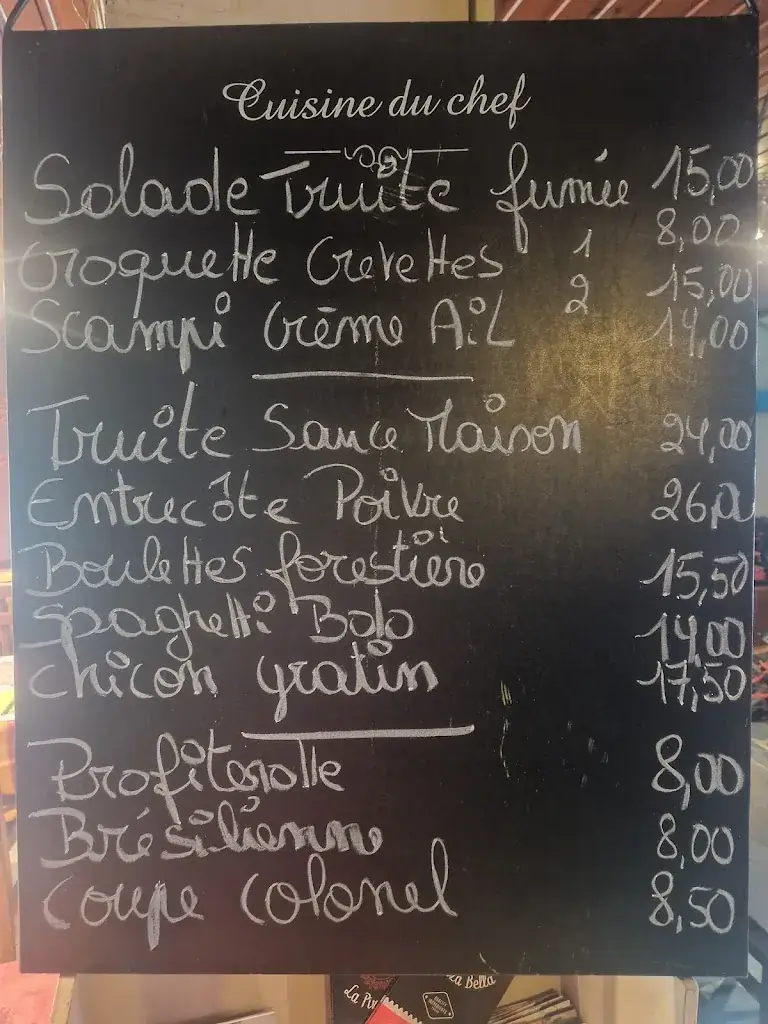 Cuisine du chef
Salade Truite fumée 15,00
Croquette Crevettes 1 8,00
2 15,00
Scampi Crème Ail 14,00
Truite Sauce Maison 24,00
Entrecôte Poivre 26,00
Boulettes forestière 15,50
Spaghetti Bolo 14,00
Chicon gratin 17,50
Profiterolle 8,00
Brésilienne 8,00
Coupe Colonel 8,50
La
La Bella